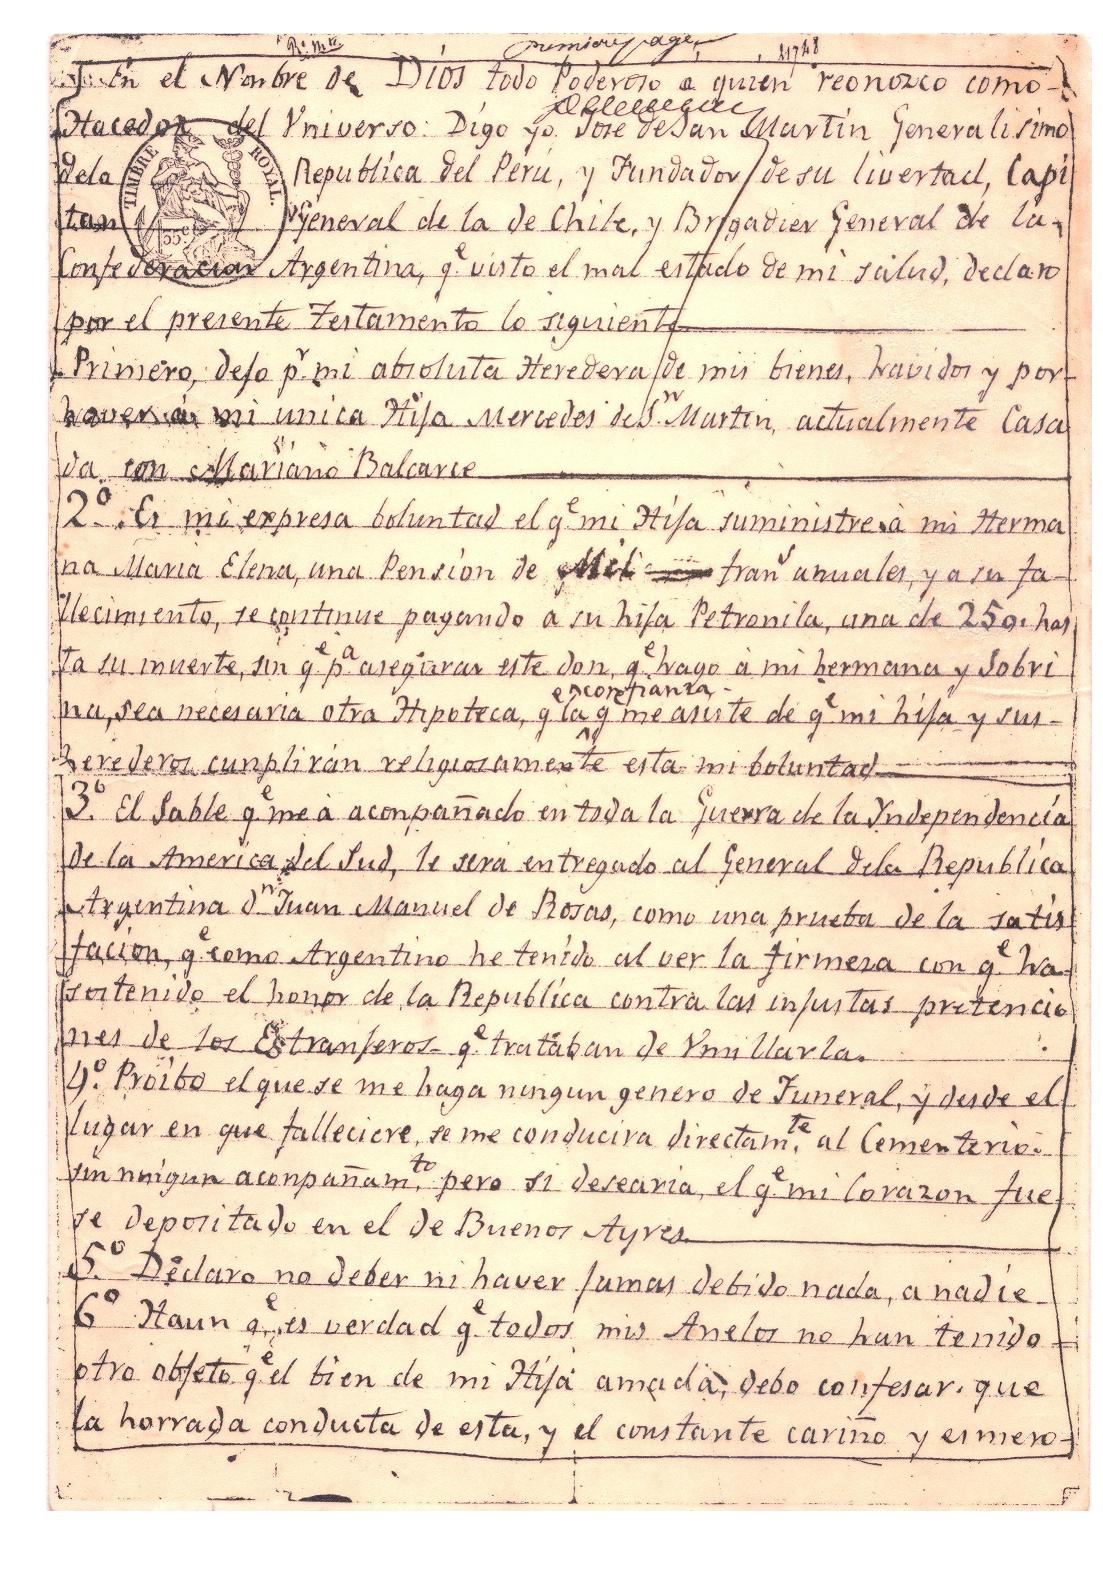 premiere page,
En el Nonbre de Dios todo Poderoso a quien reonozco como
Hacedor del Vniverso: Digo yo José de San Martin Generalisimo
TIMBRE ROYAL.
dela Republica del Perú, y Fundador de su livertad, Capi
tan General de la de Chile, y Brigadier General de la
Confederacion Argentina, qᵉ visto el mal estado de mi salud, declaro
por el presente Testamento lo siguiente
Primero, dejo pʳ mi absoluta Heredera de mis bienes, havidos y por
haver á mi unica Hija Mercedes de Sⁿ Martin, actualmente Casa
da con Mariano Balcarce
2º. Es mi expresa boluntad el qᵉ mi Hija suministre à mi Herma
na Maria Elena, una Pension de Mil franˢ anuales, y a su fa-
llecimiento, se continue pagando a su hija Petronila, una de 250. has
ta su muerte, sin qᵉ pᵃ asegurar este don, qᵉ hago à mi hermana y Sobri
na, sea necesaria otra Hipoteca, q la confianza qᵉ me asiste de qᵉ mi hija y sus-
herederos cunplirán religiosamente esta mi boluntad
3º. El Sable qᵉ me à aconpañado en toda la Guerra de la Yndependencia
de la America del Sud, le será entregado al General dela Republica
Argentina dⁿ Juan Manuel de Rosas, como una prueba de la satis
facion, qᵉ como Argentino he tenido al ver la firmeza con qᵉ ha
sostenido el honor de la Republica contra las injustas pretencio
nes de los Estranjeros qᵉ trataban de Vmillarla.
4º. Proibo el que se me haga ningun genero de Funeral, y desde el
lugar en que falleciere, se me conducira directamᵗᵉ al Cementerio
sin ningun aconpañamᵗᵒ, pero si desearia, el qᵉ mi Corazon fue
se depositado en el de Buenos Ayres
5.º Declaro no deber ni haver jamas debido nada, a nadie
6º Haun qᵉ es verdad qᵉ todos mis Anelos no han tenido
otro objeto qᵉ el bien de mi Hija amada, debo confesar. que
la horrada conducta de esta, y el constante cariño y esmero-